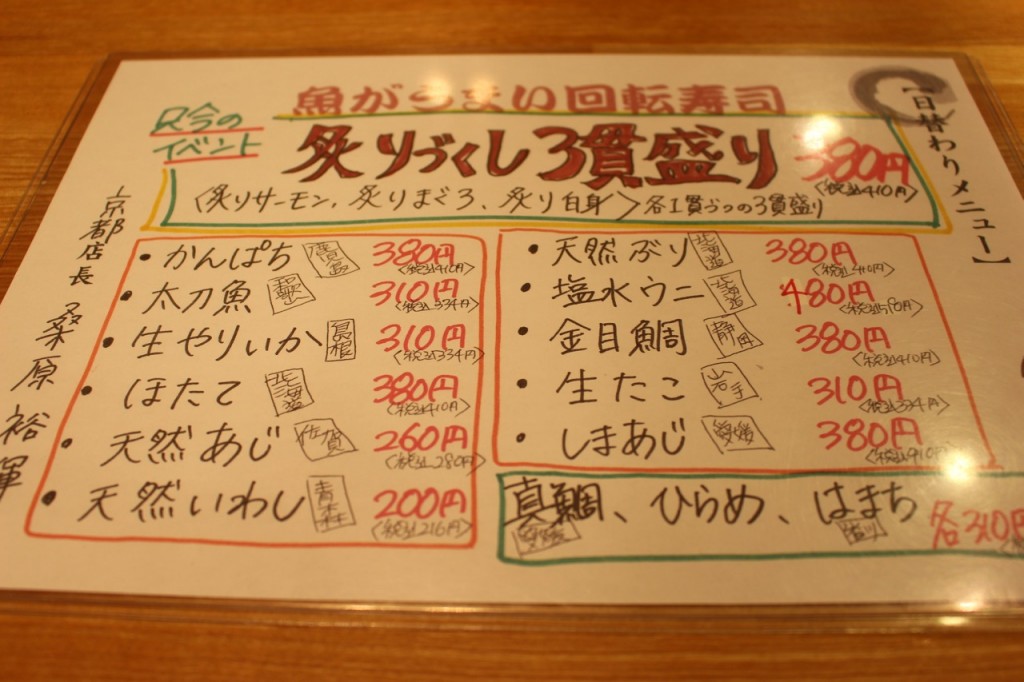 魚がうまい回転寿司
【日替わりメニュー】
只今の
イベント
炙りづくし3貫盛り 380円
〈税込410円〉
〈炙りサーモン、炙りまぐろ、炙り白身〉各1貫づつの3貫盛り
京都店長 桑原裕輝
・かんぱち 鹿児島 380円
〈税込410円〉
・太刀魚 和歌山 310円
〈税込334円〉
・生やりいか 島根 310円
〈税込334円〉
・ほたて 北海道 380円
〈税込410円〉
・天然あじ 佐賀 260円
〈税込280円〉
・天然いわし 青森 200円
〈税込216円〉
・天然ぶり 北海道 380円
〈税込410円〉
・塩水ウニ 北海道 480円
・金目鯛 静岡 380円
〈税込410円〉
・生たこ 岩手 310円
〈税込334円〉
・しまあじ 愛媛 380円
真鯛、ひらめ、はまち 各310円
愛媛